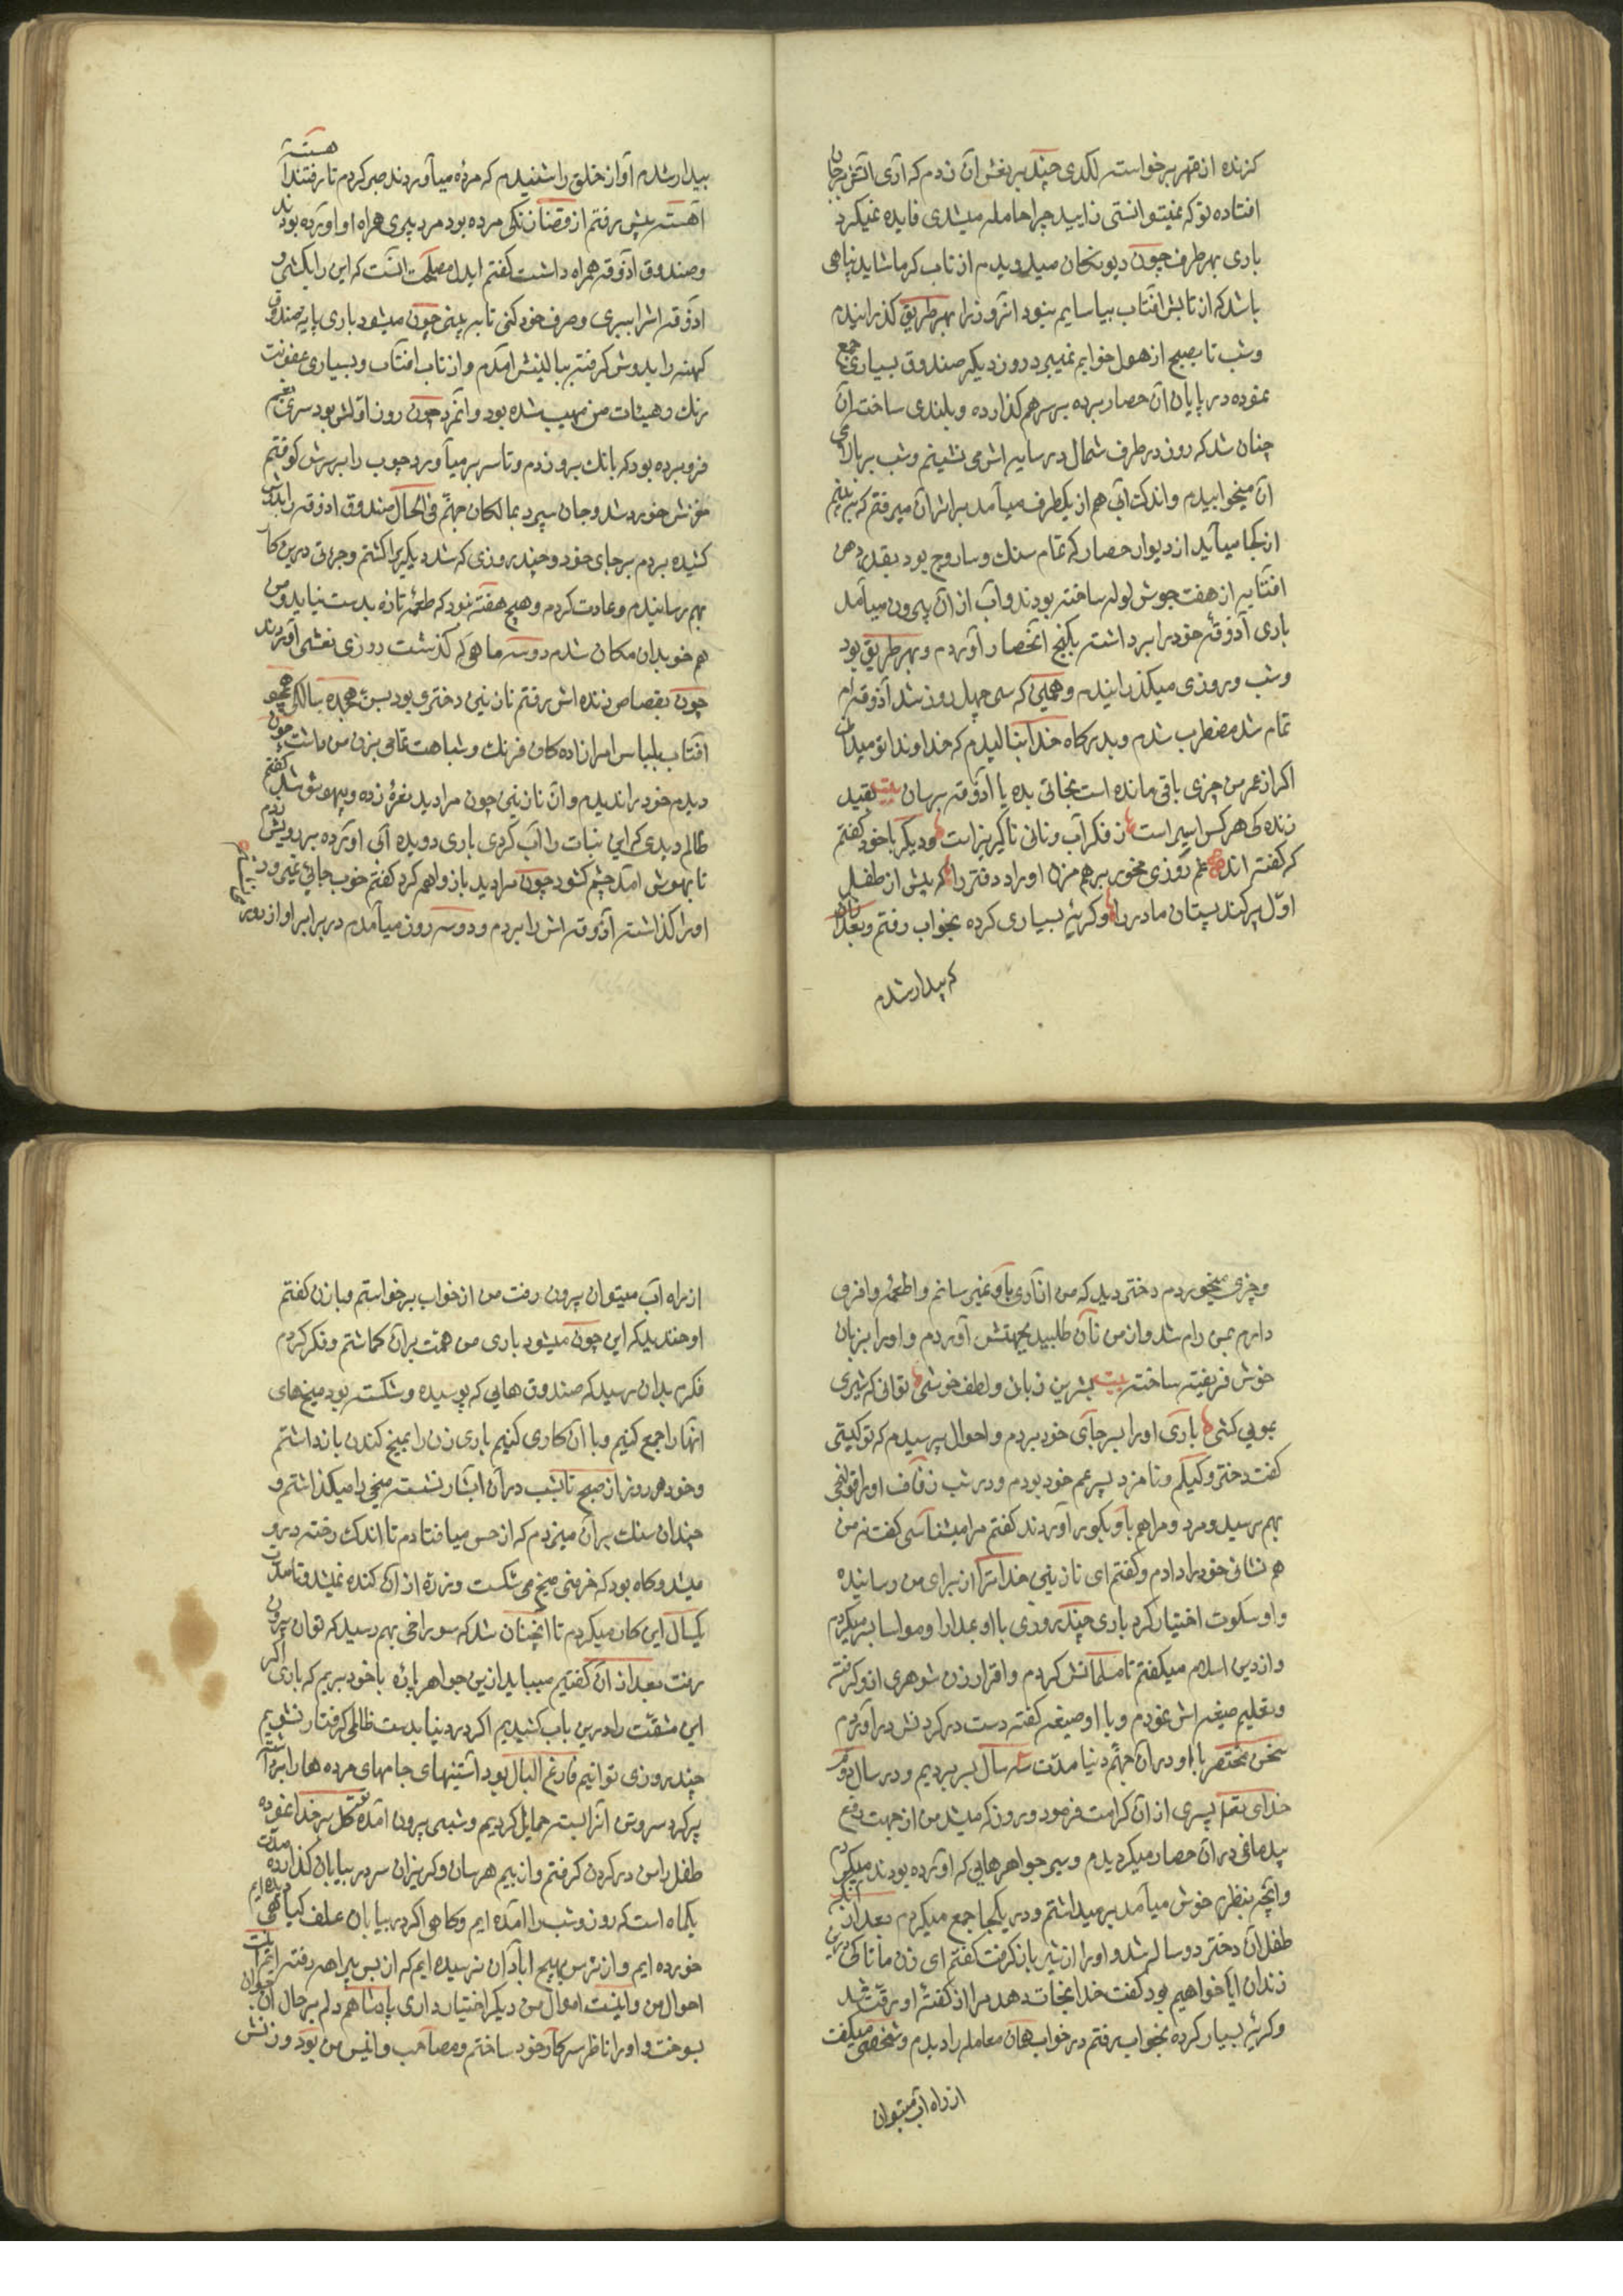 کزنده از قهر برخواسته لکدی چند بر نعش آن زدم که آری آتش بجان
افتاده تو که نمیتوانستی زایید چرا حامله میشدی فایده نمیکرد
باری بهر طرف چون دیوانکان میدویدم از تاب کرما شاید پناهی
باشد که از تابش افتاب بیاسایم نبود انروز را بهر طریق کذرانیدم
و شب تا بصبح از هول خوابم نمیبرد روز دیکر صندوق بسیاری جمع
نموده در پایان آن حصار برده بر سر هم کذارده و بلندی ساختم آن
چنان شد که روز در طرف شمال در سایه اش می نشینم و شب بر بالای
آن میخوابیدم و اندک آبی هم از یکطرف میآمد بر اثر آن میرفتم که ببینم
از کجا میآید از دیوار حصار که تمام سنک و ساروج بود بقدر دهن
افتابه از هفت جوش لوله ساخته بودند و آب از آن بیرون میآمد
باری آذوقهٔ خود را برداشته بکنج انحصار آوردم و بهر طریق بود
و شب و روزی میکذرانیدم و همین که سی چهل روز شد آذوقه ام
تمام شد مضطرب شدم و بدرکاه خدا بنالیدم که خداوندا تو میدانی
اکر از عمر من چیزی باقی مانده است نجاتی بده یا آذوقه برسان بیت بقید
زنده کی هر کس اسیر است ز فکر آب و نانی ناکزیر است و دیکر با خود کفتم
که کفته اند غم روزی مخور بر هم مزن اوراد دفتر را که پیش از طفل
اوّل پر کند پستان مادر را و کریهٔ بسیاری کرده بخواب رفتم و بعد از آن
که بیدار شدم
بیدار شدم آواز خلق را شنیدم که مرده میآوردند صبر کردم تا رفتند آهسته
آهسته پیش رفتم از قضا زنکی مرده بود مرد پیری همراه او اورده بودند
و صندوق آذوقه همراه داشت کفتم ایدل مصلحت انست که این را بکشی و
آذوقه اش را ببری و صرف خود کنی تا ببینی چون میشود باری پایه صندوق
کهنه را بدوش کرفته ببالینش امدم و از تاب افتاب و بسیاری عفونت
رنک و هیئات من مهیب شده بود و انمرد چون روز اوّلش بود سری بجیب
فرو برده بود که بانک برو زدم و تا سر بر میآورد چوب را بر سرش کوفتم
مغزش خورد شد و جان سپرد بمالکان جهنم فی الحال صندوق اذوقه را بدوش
کشیده بردم بر جای خود و چند روزی که شد دیکری را کشتم و جرئتی درین کار
بهم رسانیدم و عادت کردم و هیچ هفته نبود که طعمهٔ تازه بدست نیاید و من
هم خو بدان مکان شدم دو سه ماهی که کذشت روزی نعشی آوردند
چون بقصاص زنده اش رفتم نازنین دختری بود بسن هجده سالکی همچو
آفتاب بلباس امرازاده کان فرنک و شباهت تمامی بزن من داشت چون
دیدم خود را ندیدم و آن نازنین چون مرا دید نعرهٔ زده و بیهوش شد کفتم
ظالم دیدی که این نبات را آب کردی باری دویده آبی اورده بر رویش زدم
تا بهوش آمد چشم کشود چون مرا دید باز واهمه کرد کفتم خوب جائی نمیرود
او را کذاشته آذوقه اش را بردم و دو سه روز میآمدم در برابر او از دور
و چیزی میخوردم دختر دید که من ازاری باو نمیرسانم و اطعمهٔ وافری
دارم بمن رام شد و از من نان طلبید بجهتش آوردم و او را بزبان
خوش فریفته ساخته بیت بشیرین زبانی و لطف خوشی توانی که شیری
بمویی کشی باری او را بر جای خود بردم و احوال پرسیدم که تو کیستی
کفت دختر وکیلم و نامزد پسر عم خود بودم و در شب زفاف او را قولنجی
بهم رسید و مرد و مرا هم باو بکور آوردند کفتم مرا میشناسی کفت نه من
هم نشانی خود را دادم و کفتم ای نازنین خدا ترا از برای من رسانیده
و او سکوت اختیار کرد باری چند روزی با او بمدارا و مواسا بسر میکردم
و از دین اسلام میکفتم تا مسلمانش کردم و اقرار زن شوهری ازو کرفته
و تعلیم صیغه اش نمودم و با او صیغه کفته دست در کردنش در آوردم
سخن مختصر با او در آن جهنّم دنیا مدّت سه سال بسر بردیم و در سال دوّم
خدای تعالی پسری از آن کرامت فرمود و روز که میشد من از جهت رفع
بیدماغی در آن حصار میکردیدم و سیر جواهرهایی که اورده بودند میکردم
و آنچه بنظرم خوش میآمد بر میداشتم و در یکجا جمع میکردم بعد از آنکه
طفل آن دختر دو ساله شد و او را از شیر باز کرفت کفتم ای زن ما تا کی درین
زندان ایا خواهیم بود کفت خدا نجات دهد مرا از کفتهٔ او رقت شد
و کریهٔ بسیار کرده بخواب رفتم در خواب همان معامله را دیدم و شخصی میکفت
از راه آب میتوان
از راه آب میتوان بیرون رفت من از خواب برخواستم و با زن کفتم
او خندید که این چون میشود باری من همّت بر آن کماشتم و فکر کردم
فکرم بدان رسید که صندوق هایی که پوسیده و شکسته بود میخ های
آنها را جمع کنیم و با آن کاری کنیم باری زن را بمیخ کندن باز داشتم
و خود هر روز از صبح تا بشب در آن ابشار نشسته میخی را میکذاشتم و
چندان سنک بر آن میزدم که از حس میافتادم تا اندک رخنه درو
میشد و کاه بود که خرمنی میخ می شکست و ذرّهٔ از آن کنده نمیشد تا مدّت
یکسال این کار میکردم تا انچنان شد که سوراخی بهم رسید که توان بیرون
رفت بعد از آن کفتیم میباید ازین جواهر پارهٔ با خود بریم که باری اکر
این مشقّت را درین باب کشیدیم اکر در دنیا بدست ظالمی کرفتار نشویم
چند روزی توانیم فارغ البال بود آستینهای جامهای مرده ها را برداشته
پر کرد سر و تش آنرا بسته حمایل کردیم و شبی بیرون آمده توکل بر خدا نموده
طفل را من در کردن کرفتم و از بیم هرسان و کریزان سر در بیابان کذارده مدّت
یکماه است که روز و شب راه آمده ایم و کاهی اکر در بیابان علف کیاهی دیده ایم
خورده ایم و از ترس بهیچ ابادان نرسیده ایم که از بس بیراهه رفته ایم اینست
احوال من و اینست اموال من دیکر اختیار داری پادشاهم دلم بر حال آن جوان
بسوخت و او را ناظر سرکار خود ساختم و مصاحب و انیس من بود و زنش